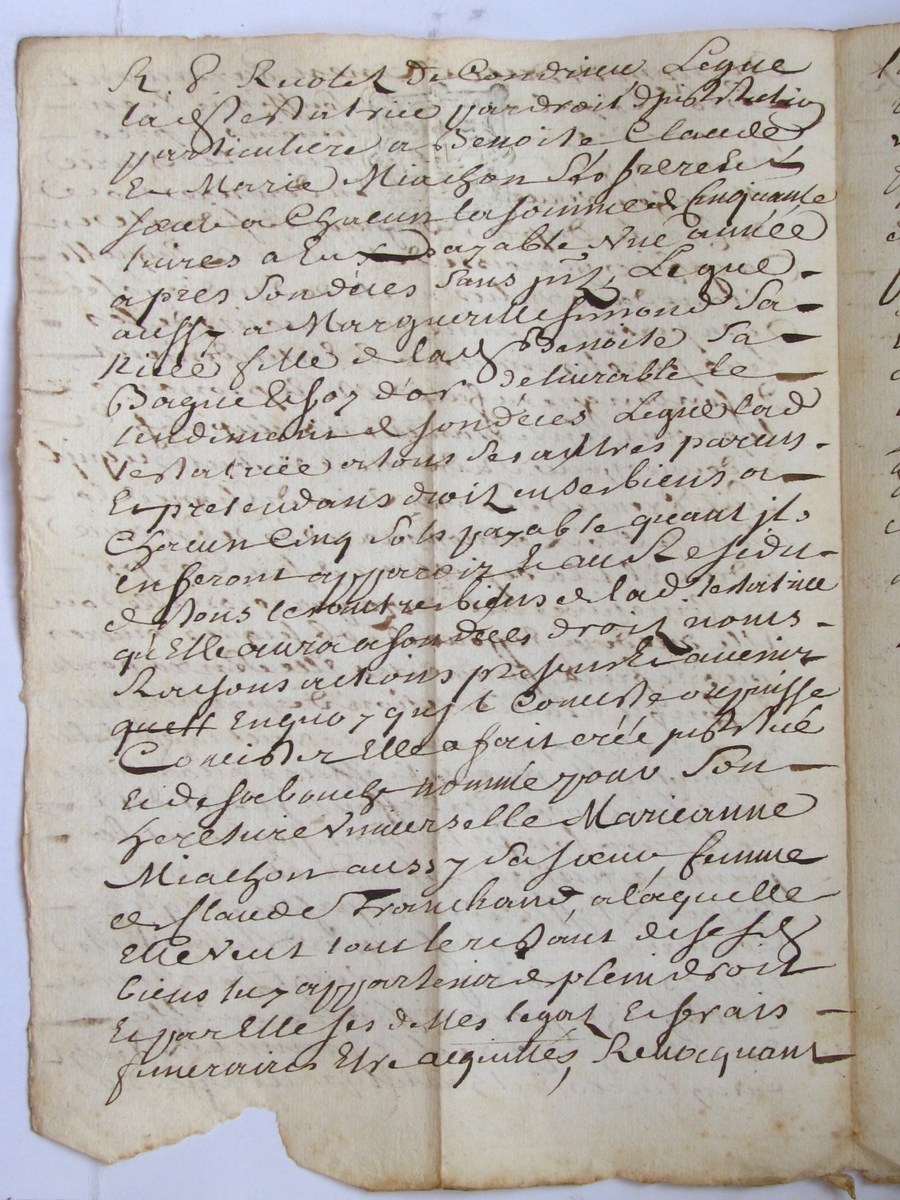 R. P. Recolet de Condrieu Legue
lad testatrice par droit d'institution
particuliere a Benoite Claude
Et Marie Miachon Ses freres et
sœur a Chacun la somme de Cinquante
livres a Eux payable Une année
apres son deces sans jnt, Legue
aussy a Margueritte Simond Sa
Niece fille de lad Benoite Sa
Bague de foy d'or delivrable le
lendemain de son deces Legue lad
testatrice a tous ses autres parans
Et pretendans droit en ses biens a
Chacun Cinq sols payable quant jls
en feront apparoir Et au Residu
de tous les autres biens de lad testatrice
qu'Elle aura a son deces droit noms
Raisons actions present Et avenir
En quoy qu'jl Conciste ou puisse
Concister Elle a fait crée jnstitué
Et de sa bouche nommé pour Son
heretiere Universelle Marieanne
Miachon aussy Sa sœur femme
de Claude Tranchand, a laquelle
Elle Veut tout le restant de ses d
biens luy appartenir de plein droit
Et par Elle ses dettes legat Et frais
funeraires Etre acquittés, Revocquant